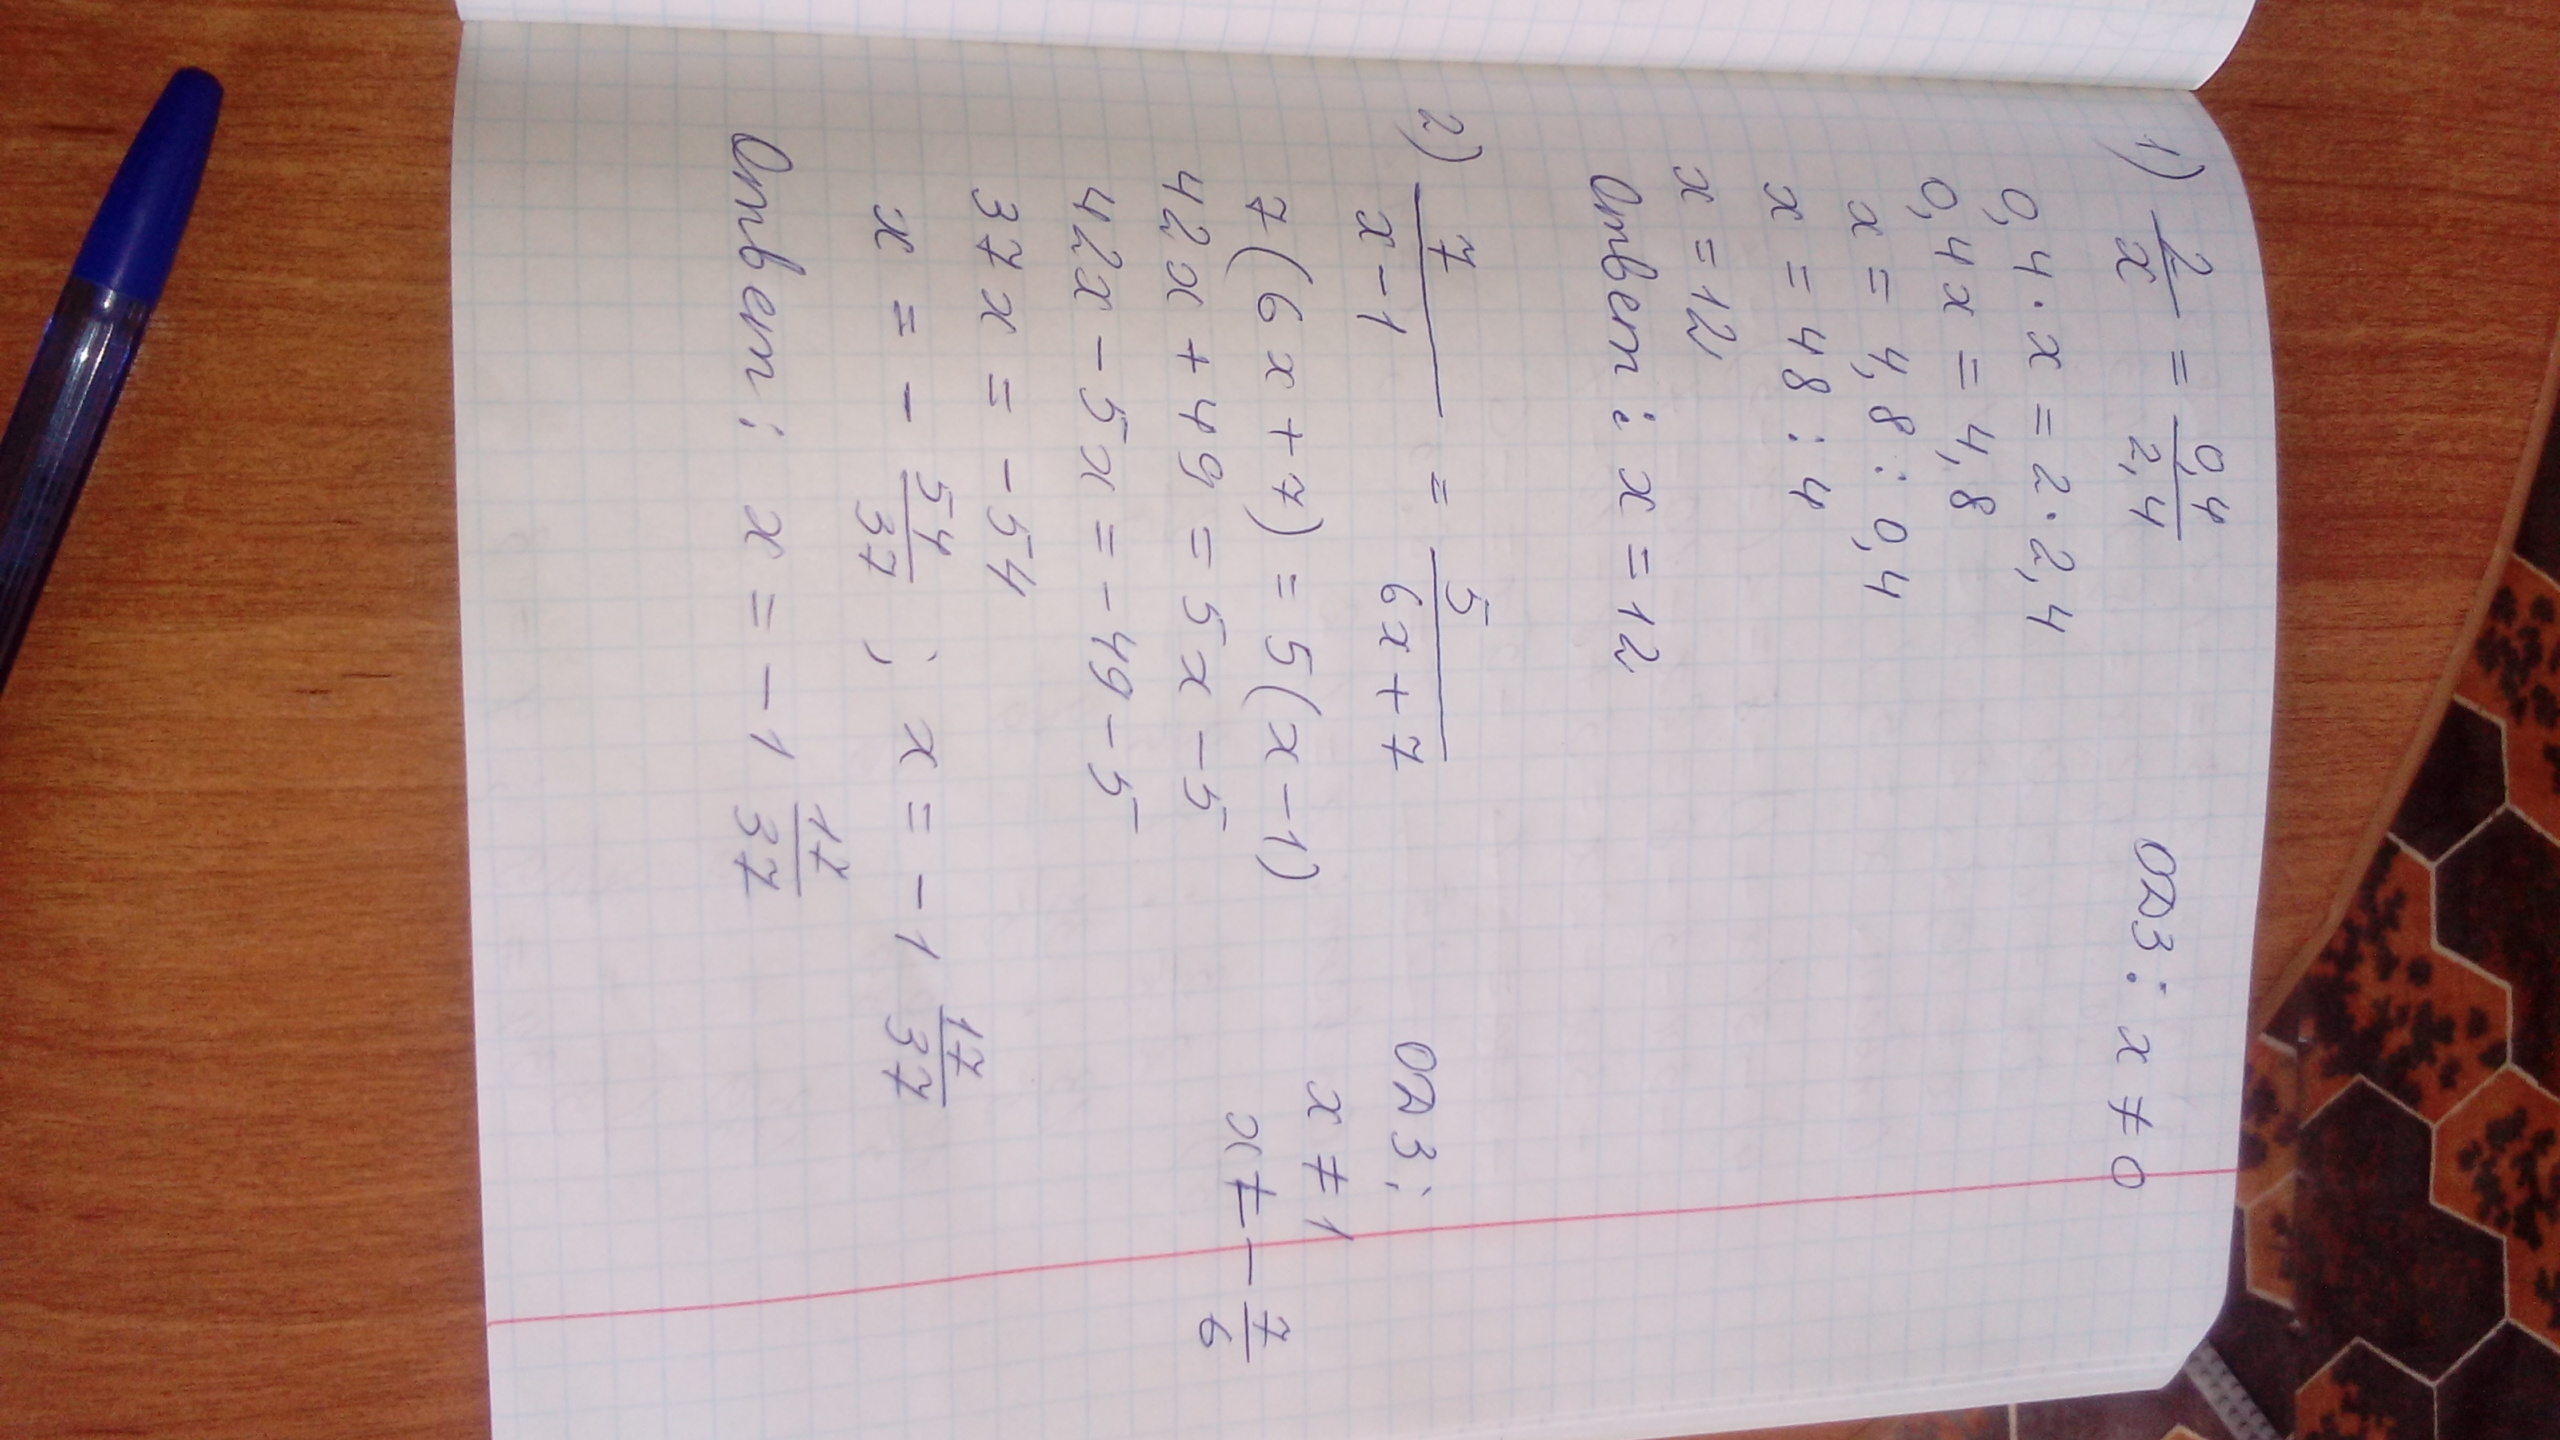 1) 2/x = 0,4/2,4 ОДЗ: x ≠ 0
0,4 · x = 2 · 2,4
0,4x = 4,8
x = 4,8 : 0,4
x = 48 : 4
x = 12
Ответ: x = 12
2) 7/(x-1) = 5/(6x+7) ОДЗ:
x ≠ 1
7(6x+7) = 5(x-1)
x ≠ -7/6
42x + 49 = 5x - 5
42x - 5x = -49 - 5
37x = -54
x = - 54/37 ; x = -1 17/37
Ответ: x = -1 17/37